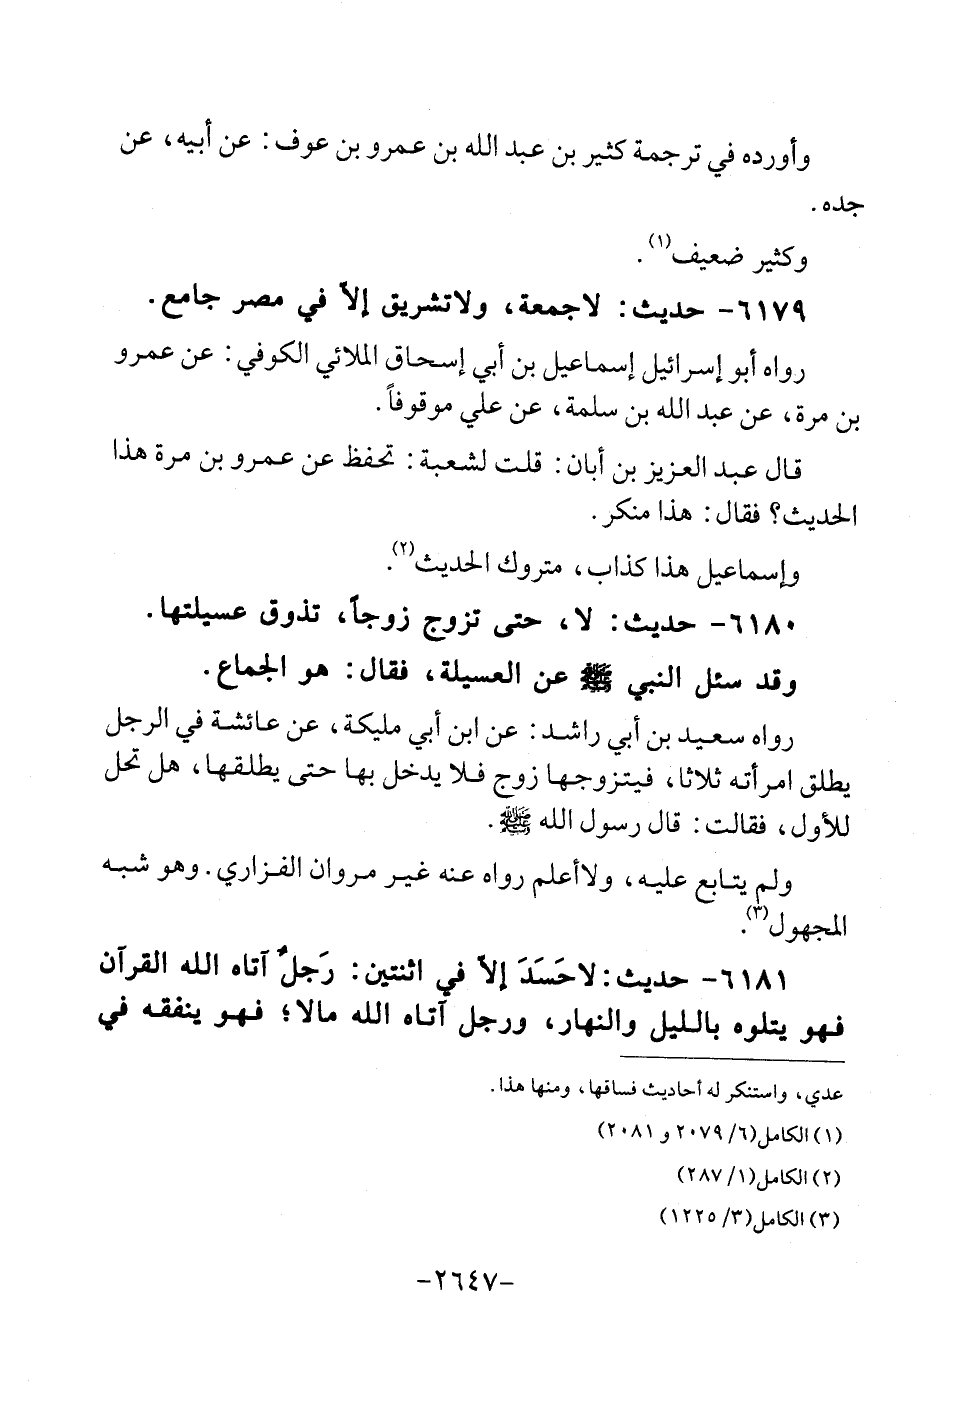 وأورده في ترجمة كثير بن عبد الله بن عمرو بن عوف: عن أبيه، عن
جده.
وكثير ضعيف(١).
٦١٧٩- حديث: لاجمعة، ولاتشريق إلاّ في مصر جامع.
رواه أبو إسرائيل إسماعيل بن أبي إسحاق الملائي الكوفي: عن عمرو
بن مرة، عن عبد الله بن سلمة، عن علي موقوفاً.
قال عبد العزيز بن أبان: قلت لشعبة: تحفظ عن عمرو بن مرة هذا
الحديث؟ فقال: هذا منكر.
وإسماعيل هذا كذاب، متروك الحديث(٢).
٦١٨٠- حديث: لا، حتى تزوج زوجاً، تذوق عسيلتها.
وقد سئل النبي ﷺ عن العسيلة، فقال: هو الجماع.
رواه سعيد بن أبي راشد: عن ابن أبي مليكة، عن عائشة في الرجل
يطلق امرأته ثلاثا، فيتزوجها زوج فلا يدخل بها حتى يطلقها، هل تحل
للأول، فقالت: قال رسول الله ﷺ.
ولم يتابع عليه، ولاأعلم رواه عنه غير مروان الفزاري. وهو شبه
المجهول(٣).
٦١٨١- حديث: لاحَسَدَ إلاّ في اثنتين: رَجلٌ آتاه الله القرآن
فهو يتلوه بالليل والنهار، ورجل آتاه الله مالا؛ فهو ينفقه في
عدي، واستنكر له أحاديث فساقها، ومنها هذا.
(١) الكامل(٦/ ٢٠٧٩ و ٢٠٨١)
(٢) الكامل(١/ ٢٨٧)
(٣) الكامل(٣/ ١٢٢٥)
-٢٦٤٧-